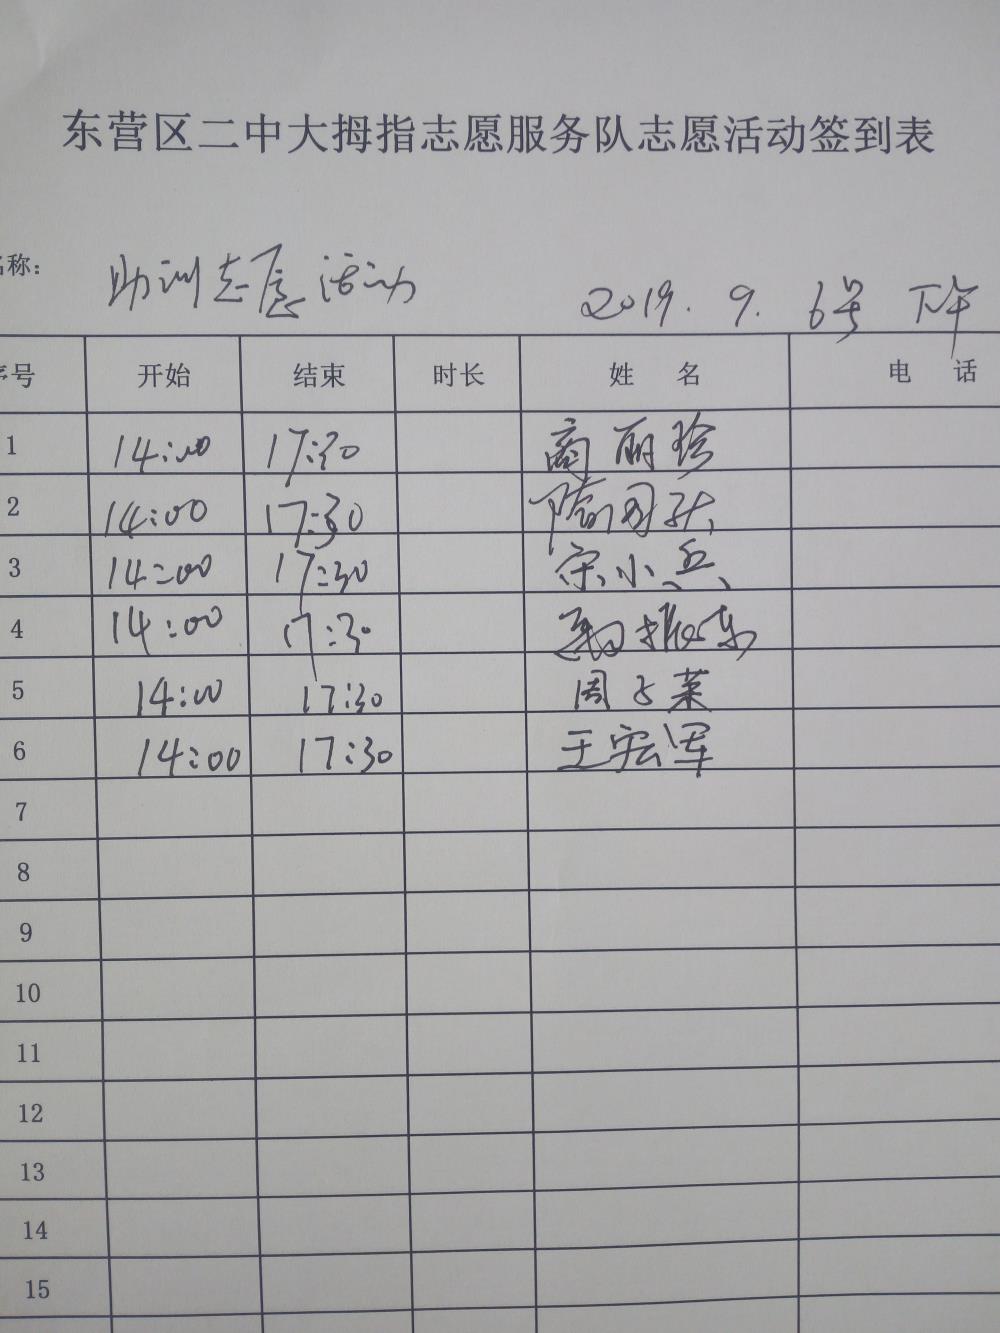 东营区二中大拇指志愿服务队志愿活动签到表
名称： 助训志愿活动 2019.9.6号 下午
序号 开始 结束 时长 姓 名 电 话
1 14:00 17:30 商丽珍
2 14:00 17:30
3 14:00 17:30 宋小兵
4 14:00 17:30
5 14:00 17:30 周子莱
6 14:00 17:30 王宏军
7
8
9
10
11
12
13
14
15